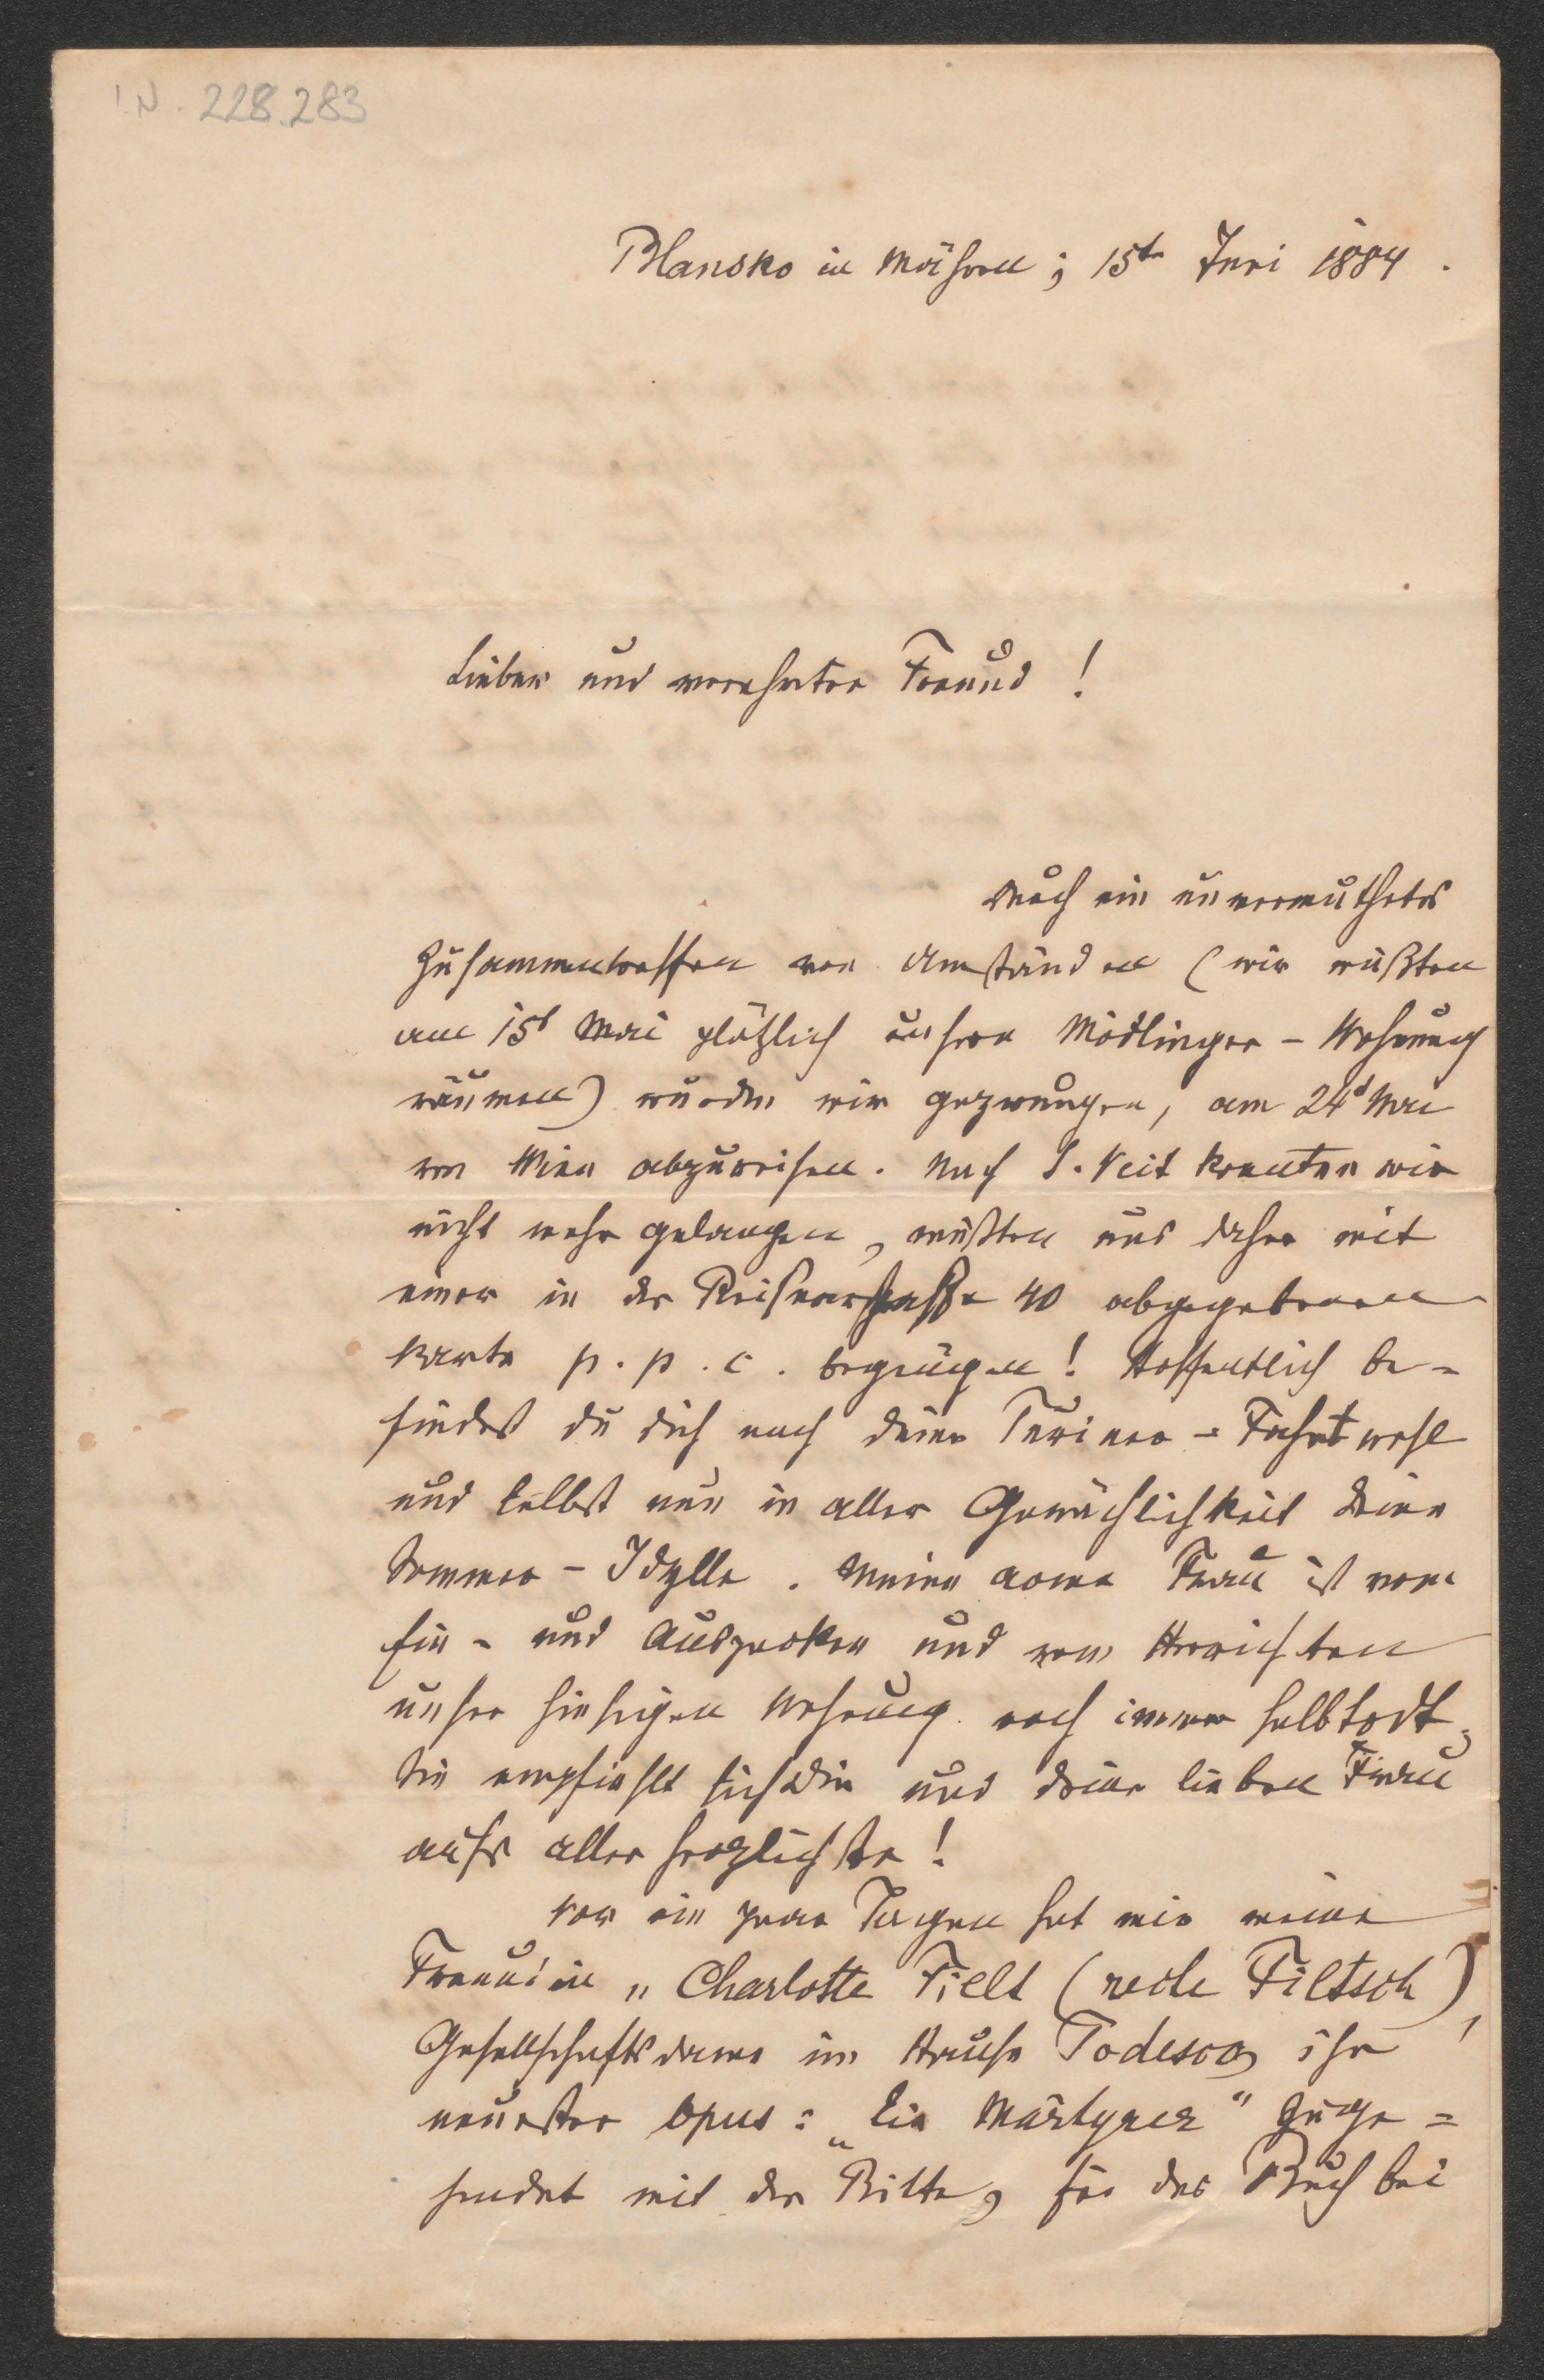 I.N. 228.283
Blansko in Mähren; 15te Juni 1884.
Lieber und verehrter Freund!
Durch ein unvermuthetes
Zusammentreffen von Umständen (wir mußten
am 15t Mai plötzlich unsere Mödlinger-Wohnung
räumen) wurden wir gezwungen, am 24t Mai
von Wien abzureisen. Nach S. Veit konnten wir
nicht mehr gelangen, mußten uns daher mit
einer in der Reisnerstraße 40 abgegebenen
Karte p. p. c. begnügen! Hoffentlich be=
findest du dich nach deiner Turiner-Fahrt wohl
und lebst nun in aller Gemächlichkeit deine
Sommer-Idylle. Meine arme Frau ist vom
Ein- und Auspacken und vom Herrichten
unser hiesigen Wohnung noch immer halbtodt;
Sie empfiehlt sich dir und deiner lieben Frau
aufs allerherzlichste!
Vor ein paar Tagen hat mir meine
Freundin „Charlotte Fielt (recte Filtsch),
Gesellschaftsdame im Hause Todesco, ihr
neuestes Opus: „Ein Märtyrer" zuge=
sendet mit der Bitte, für das Buch bei